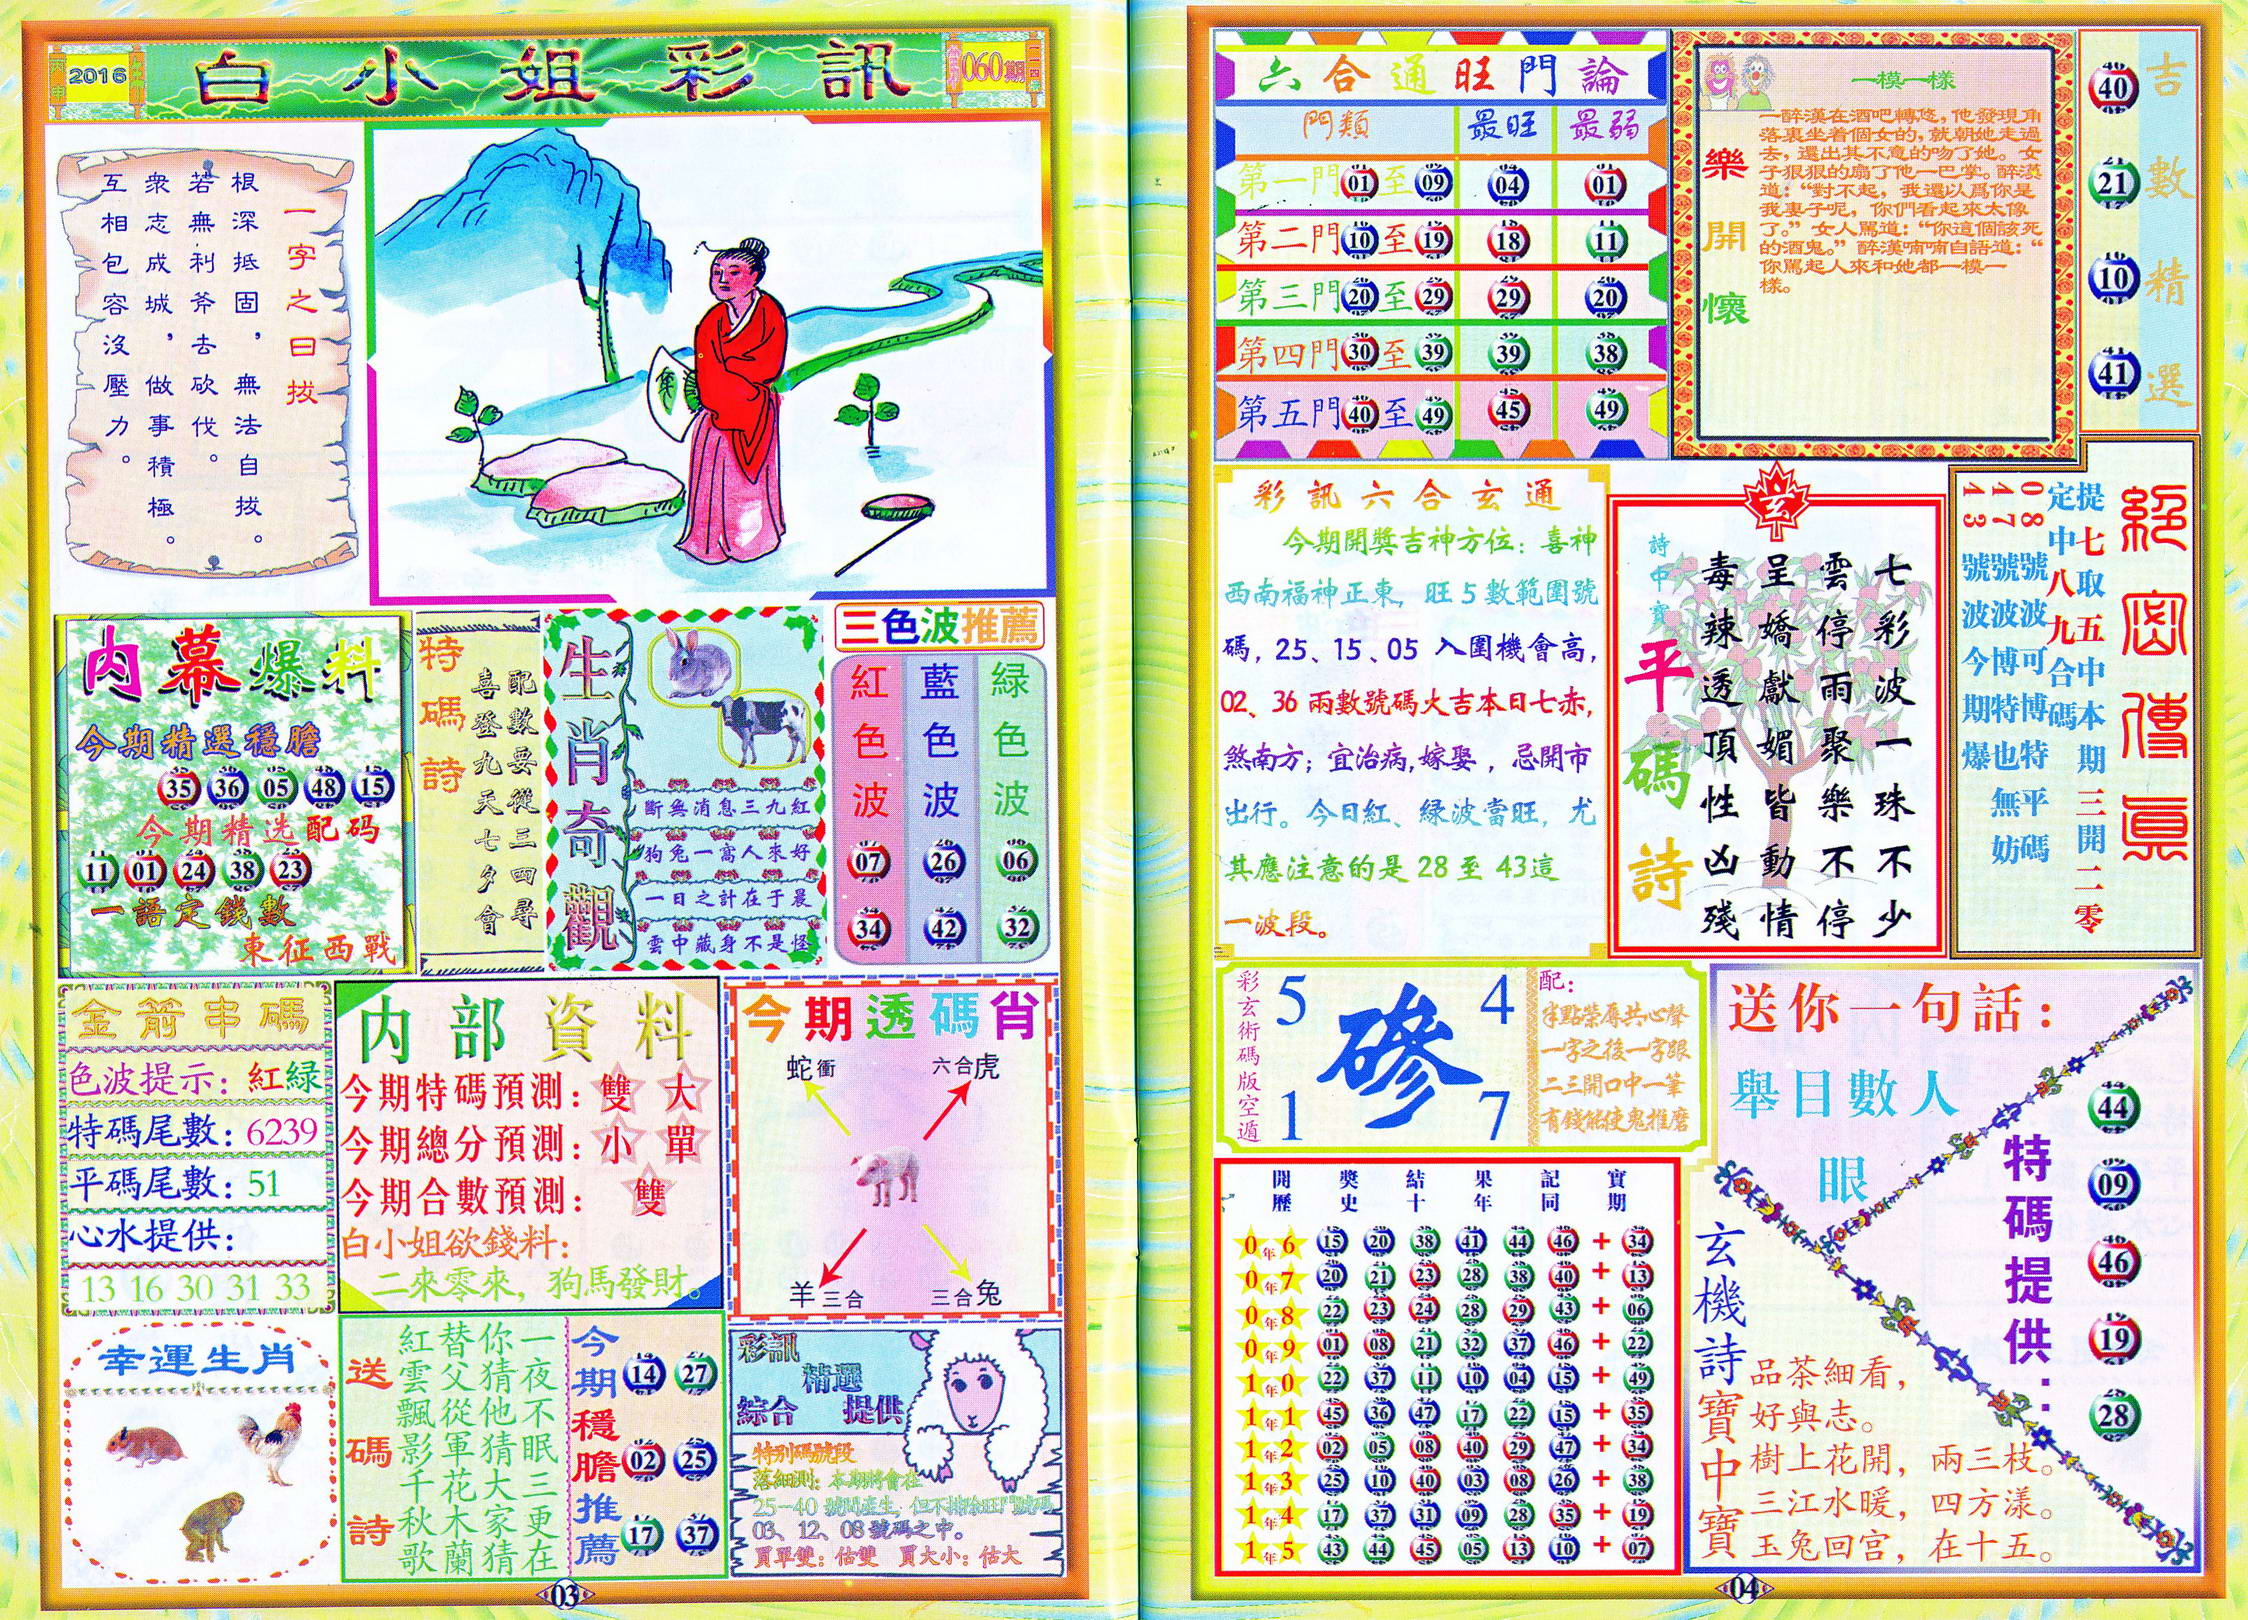 2016
白小姐彩訊
060期
一字之曰拔
根深抵固，無法自拔。
若無利斧去砍伐。
衆志成城，做事積極。
互相包容沒壓力。
内幕爆料
今期精選穩膽
35 36 05 48 15
今期精选配码
11 01 24 38 23
一語定錢數
東征西戰
特碼詩
配數要從三四尋
喜登九天七夕會
生肖奇觀
斷無消息三九紅
狗兔一窩人來好
一日之計在于晨
雲中藏身不是怪
三色波推薦
紅色波 藍色波 緑色波
07 26 06
34 42 32
金箭串碼
色波提示：紅緑
特碼尾數：6239
平碼尾數：51
心水提供：
13 16 30 31 33
内部資料
今期特碼預測：雙 大
今期總分預測：小 單
今期合數預測：雙
白小姐欲錢料：
二來零來，狗馬發財。
今期透碼肖
蛇衝 六合虎
羊三合 三合兔
幸運生肖
送碼詩
一夜不眠三更在
你猜他猜大家猜
替父從軍花木蘭
紅雲飄影千秋歌
今期穩膽推薦
14 27
02 25
17 37
彩訊
精選
綜合 提供
特别碼號段
落細測：本期將會在
25－40 號間産生，但不排除旺門號碼
03、12、08 號碼之中。
買單雙：估雙 買大小：估大
03
六合通旺門論
門類 最旺 最弱
第一門 01 至 09 04 01
第二門 10 至 19 18 11
第三門 20 至 29 29 20
第四門 30 至 39 39 38
第五門 40 至 49 45 49
樂開懷
一模一樣
一醉漢在酒吧轉悠，他發現角
落裏坐着個女的，就朝她走過
去，還出其不意的吻了她。女
子狠狠的扇了他一巴掌。醉漢
道：“對不起，我還以爲你是
我妻子呢，你們看起來太像
了。” 女人罵道：“你這個該死
的酒鬼。” 醉漢喃喃自語道：“
你罵起人來和她都一模一
樣。
吉數精選
40
21
10
41
彩訊六合玄通
今期開獎吉神方位：喜神
西南福神正東，旺 5 數範圍號
碼，25、15、05 入圍機會高，
02、36 兩數號碼大吉本日七赤，
煞南方；宜治病，嫁娶，忌開市
出行。今日紅、緑波當旺，尤
其應注意的是 28 至 43這
一波段。
玄
詩中寶
平碼詩
七彩波一珠不少
雲停雨聚樂不停
呈嬌獻媚皆動情
毒辣透頂性凶殘
絕密傳真
提七取五中本期三開二零
定中八九合碼
08號波可博特平碼
47號波博特也無妨
43號波今期爆
彩玄術碼版空遁
5 4
磣
1 7
配：
半點榮辱共心聲
一字之後一字跟
二三開口中一筆
有錢能使鬼推磨
開獎結果記寶
歷史十年同期
06年 15 20 38 41 44 46 + 34
07年 20 21 23 28 38 40 + 13
08年 22 23 24 28 29 43 + 06
09年 01 08 21 32 37 46 + 22
10年 22 37 11 10 04 15 + 49
11年 45 36 47 17 22 15 + 35
12年 02 05 08 40 29 47 + 34
13年 25 10 40 03 08 26 + 38
14年 17 37 31 09 28 35 + 19
15年 43 44 45 05 13 10 + 07
送你一句話：
舉目數人
眼
特碼提供：
44
09
46
19
28
玄機詩寶中寶
品茶細看，
好與志。
樹上花開，兩三枝。
三江水暖，四方漾。
玉兔回宫，在十五。
04